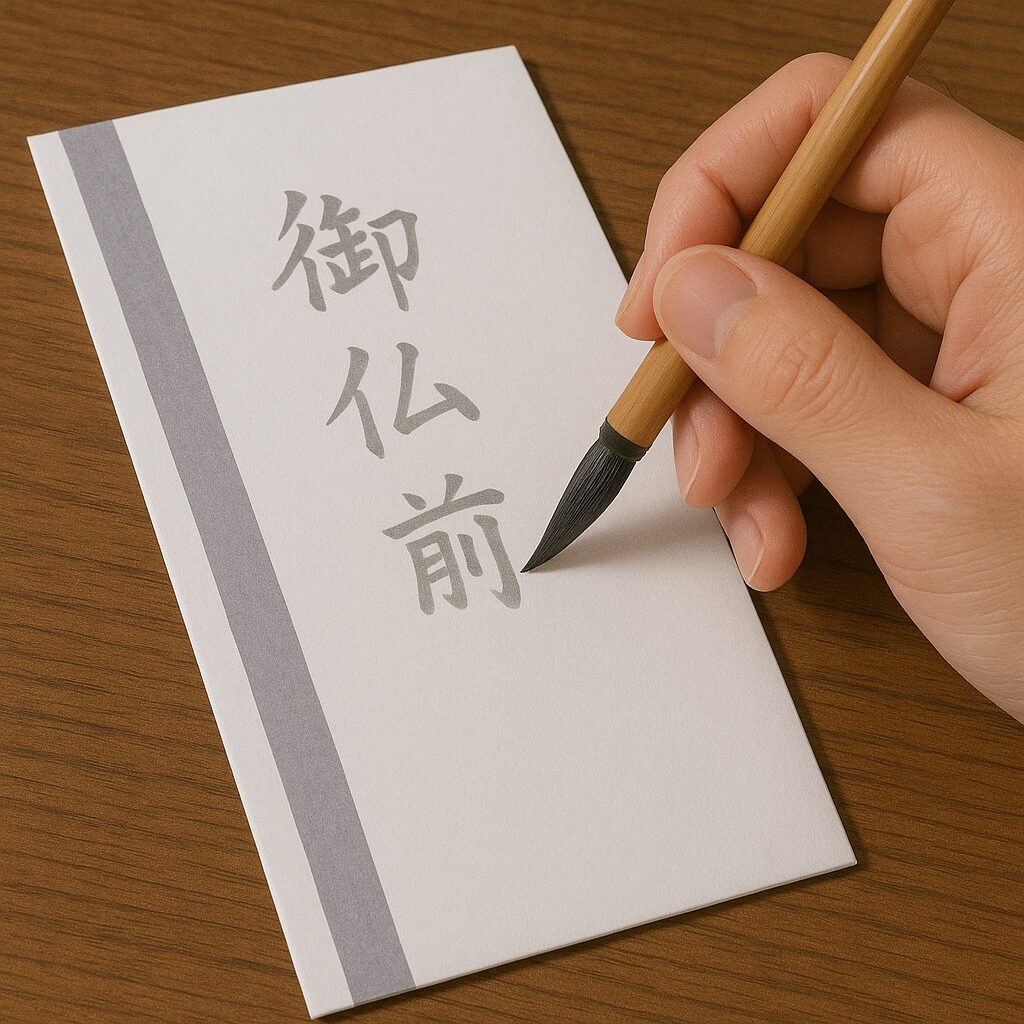 御仏前